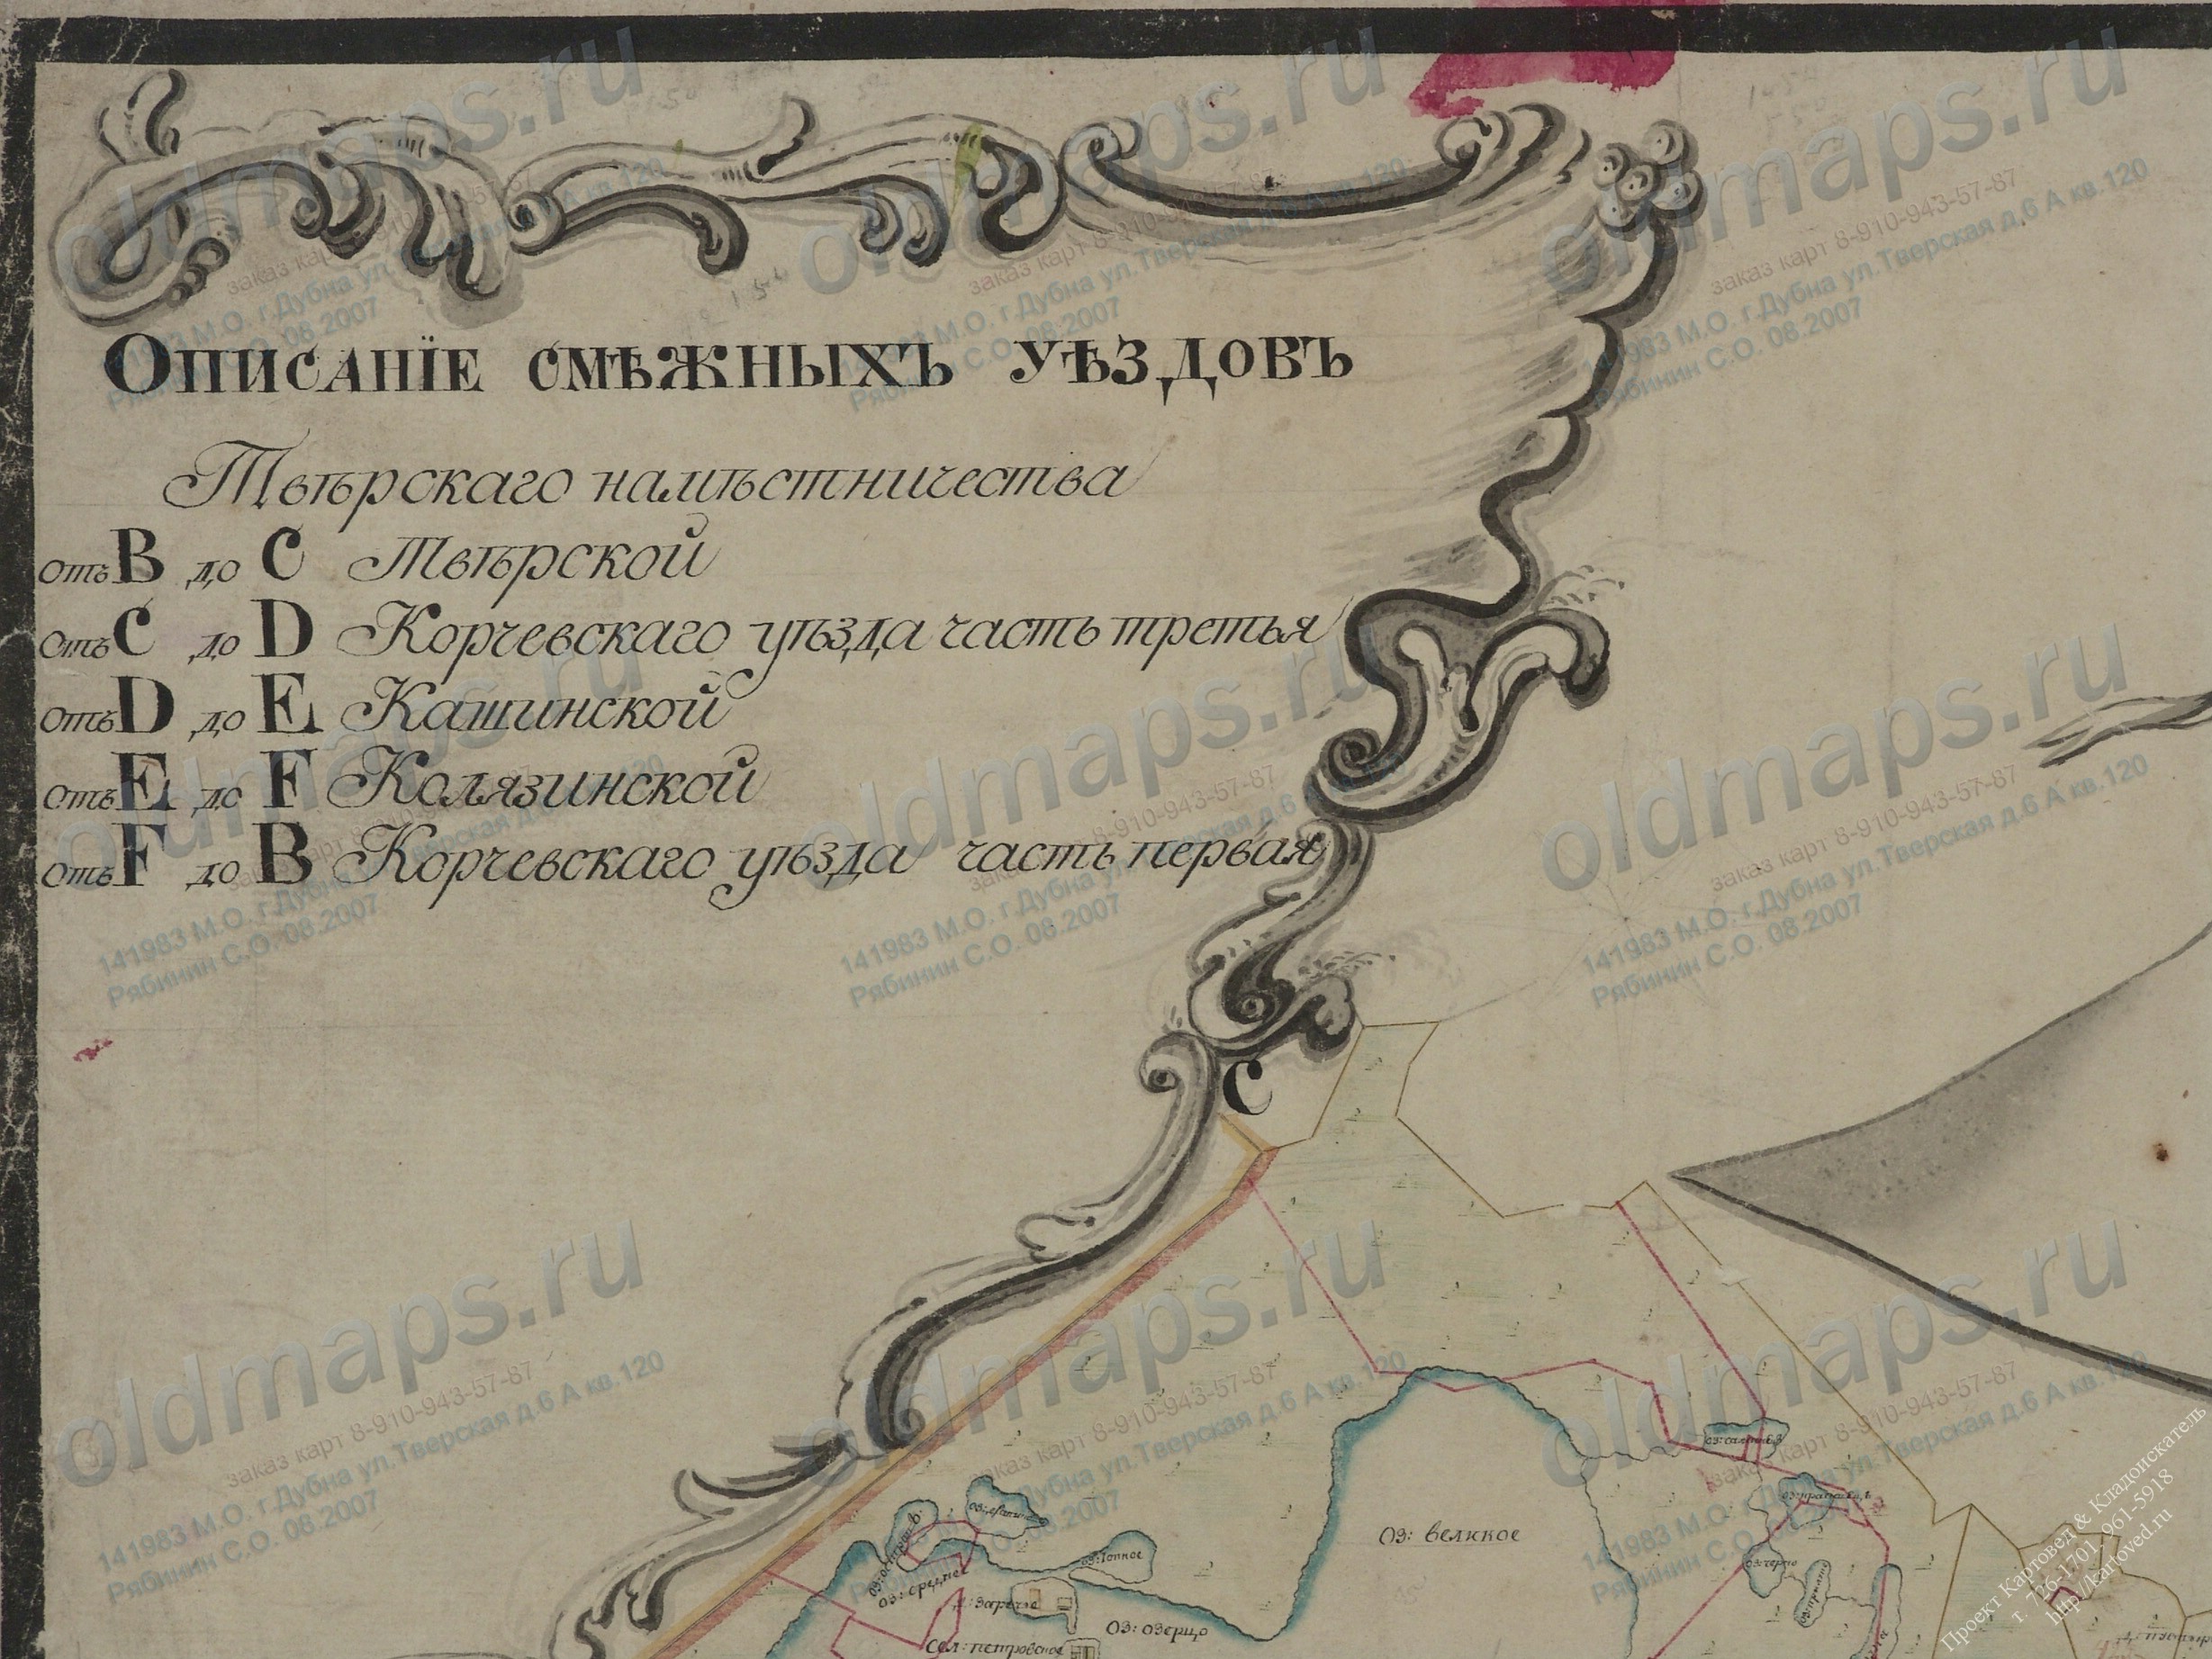 Описанїе смѣжныхъ уѣздовъ
Твѣрскаго намѣстничества
Отъ B до C Твѣрской
Отъ C до D Корчевскаго уѣзда часть третья
Отъ D до E Кашинской
Отъ E до F Колязинской
Отъ F до B Корчевскаго уѣзда часть первая
C
оз: великое
оз: черно
оз: топкое
оз: среднее
д: заречье
оз: озерцо
сел: петровское
oldmaps.ru
заказ карт 8-910-943-57-87
141983 М.О. г.Дубна ул.Тверская д.6 А кв.120
Рябинин С.О. 08.2007
Проект Картовед & Кладоискатель
т. 726-1701 - 961-5918
http://kartoved.ru